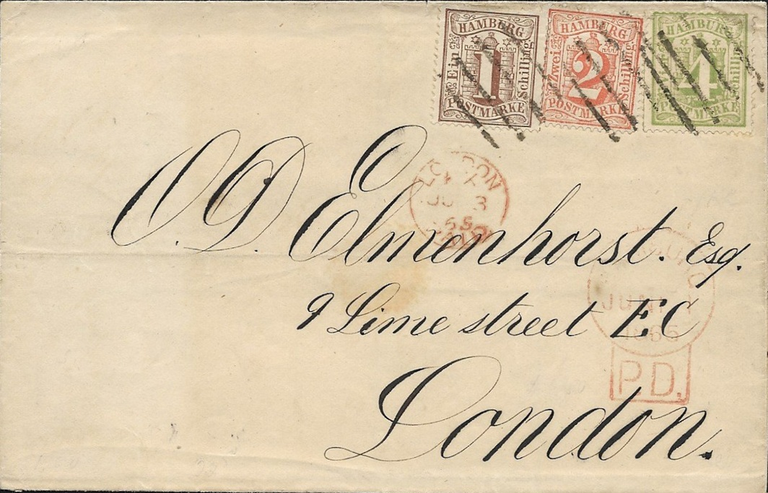 HAMBURG
Ein 1 Schilling
POSTMARKE
HAMBURG
Zwei 2 Schilling
POSTMARKE
HAMBURG
4 Schilling
LONDON
3
65
PAID
O. D. Elmenhorst. Esq.
9 Lime street EC
London.
JUN
P.D.